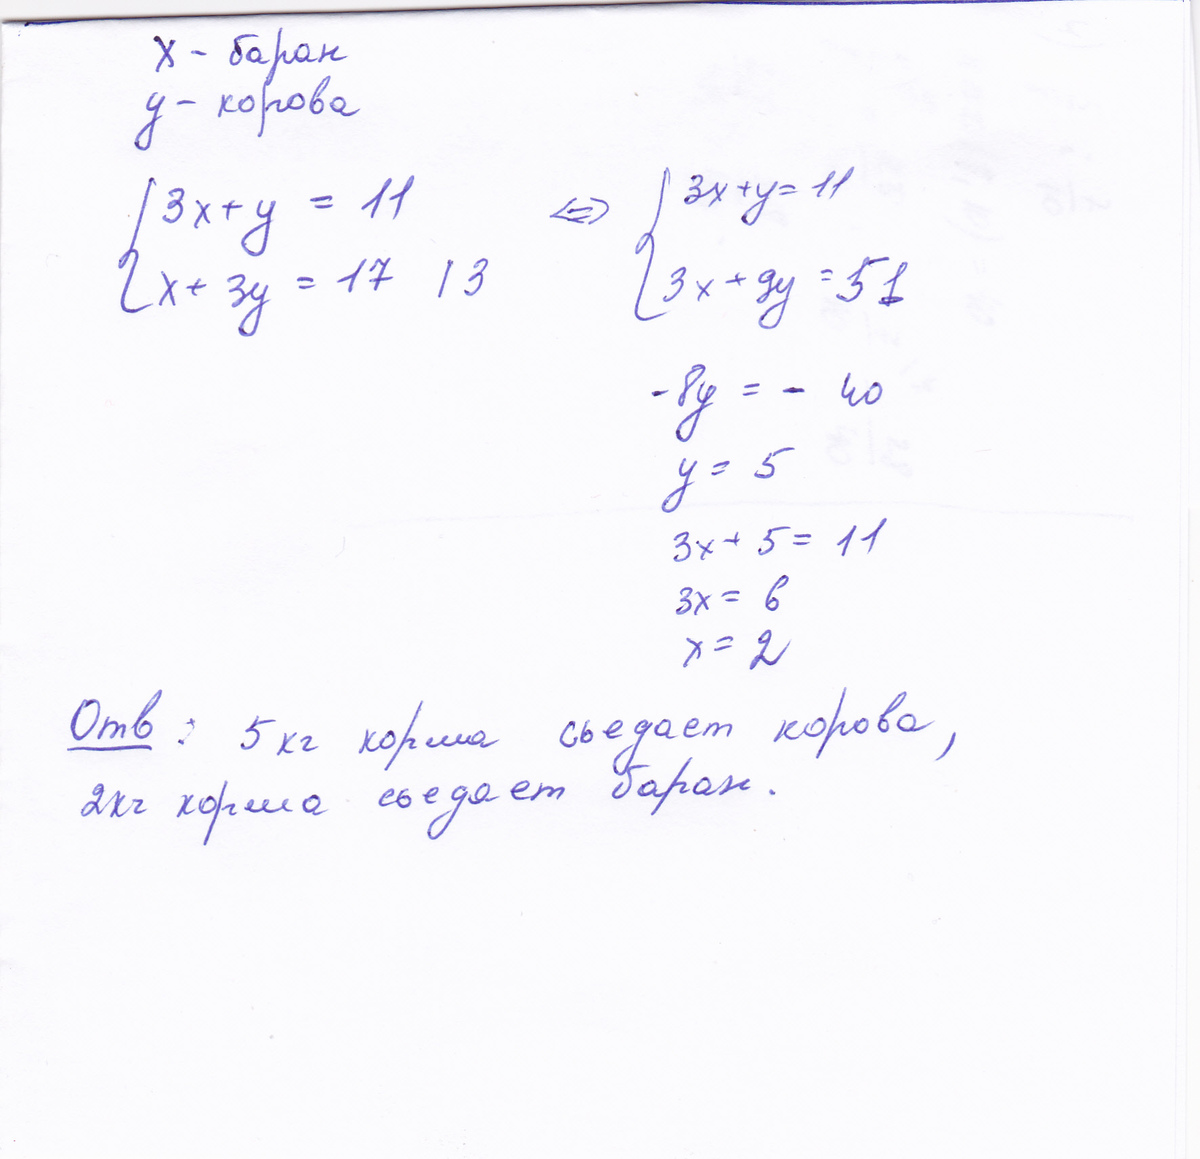 x - баран
y - корова
3x + y = 11
x + 3y = 17 | 3
⇔
3x + y = 11
3x + 9y = 51
-8y = - 40
y = 5
3x + 5 = 11
3x = 6
x = 2
Отв : 5 кг корма сьедает корова,
2кг корма сьедает баран.